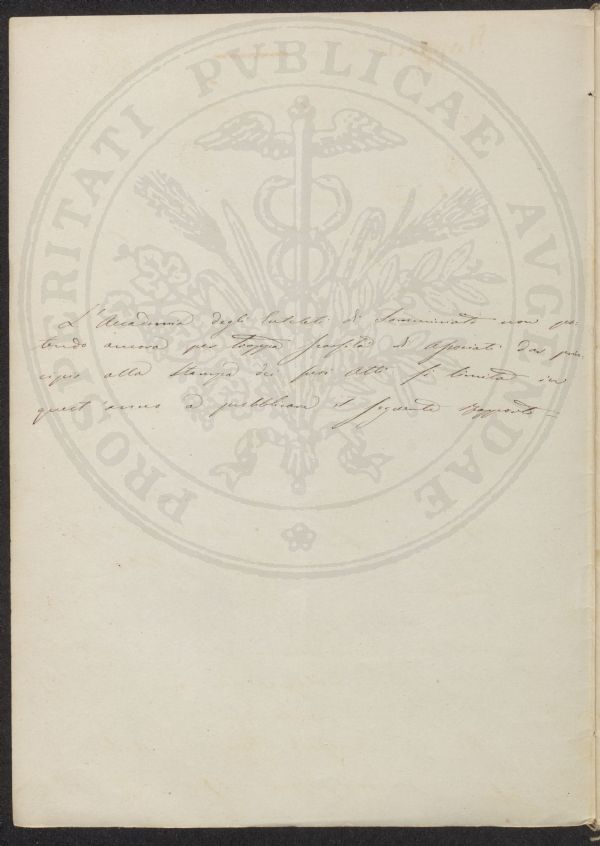 PROSPERITATI PVBLICAE AVGENDAE
L'Accademia degli Euteleti di Sanminiato non po-
tendo ancora per troppa scarsità di Associati dar prin-
cipio alla Stampa dei suoi Atti si limita in
quest'anno a pubblicare il seguente Rapporto –